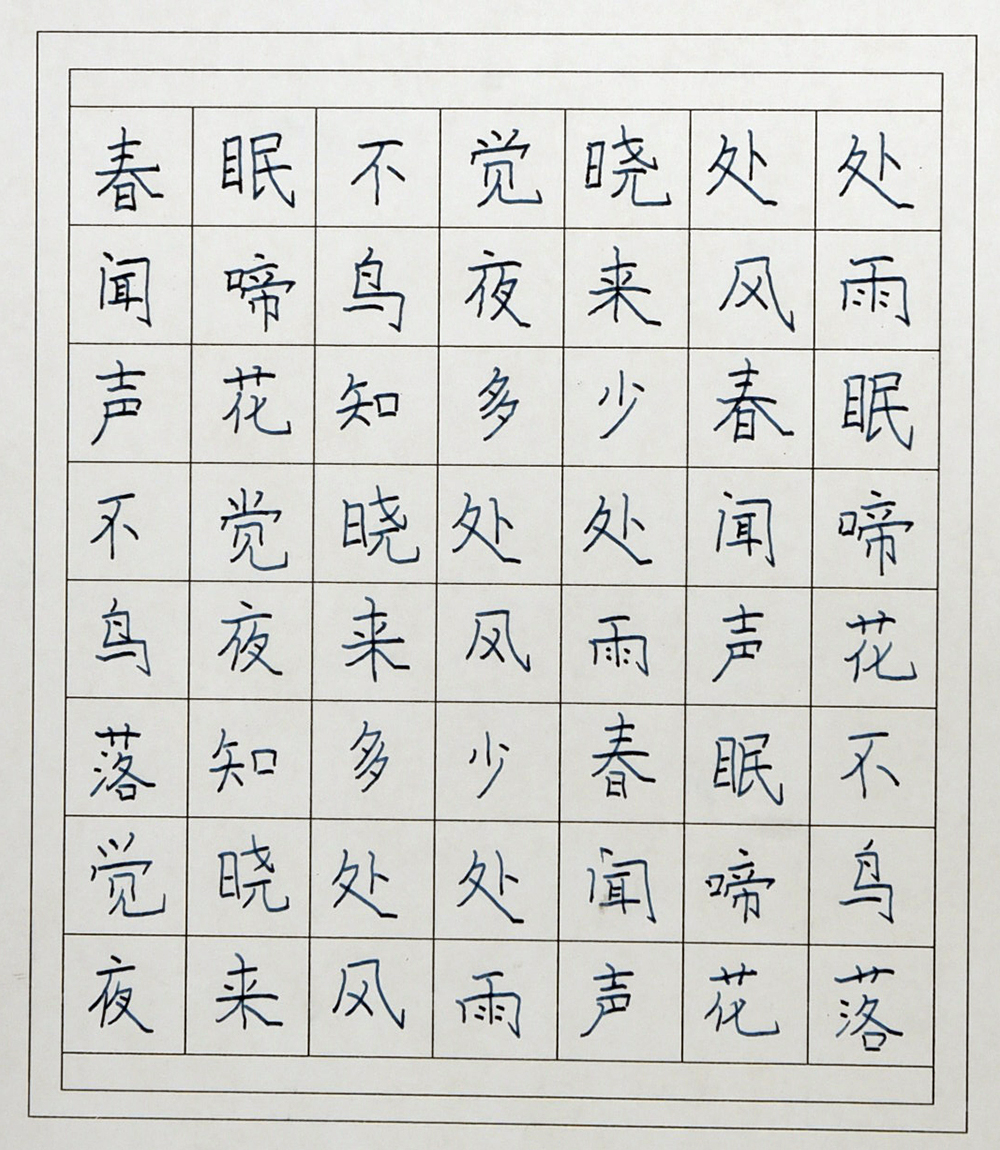 春眠不觉晓处处
闻啼鸟夜来风雨
声花知多少春眠
不觉晓处处闻啼
鸟夜来风雨声花
落知多少春眠不
觉晓处处闻啼鸟
夜来风雨声花落